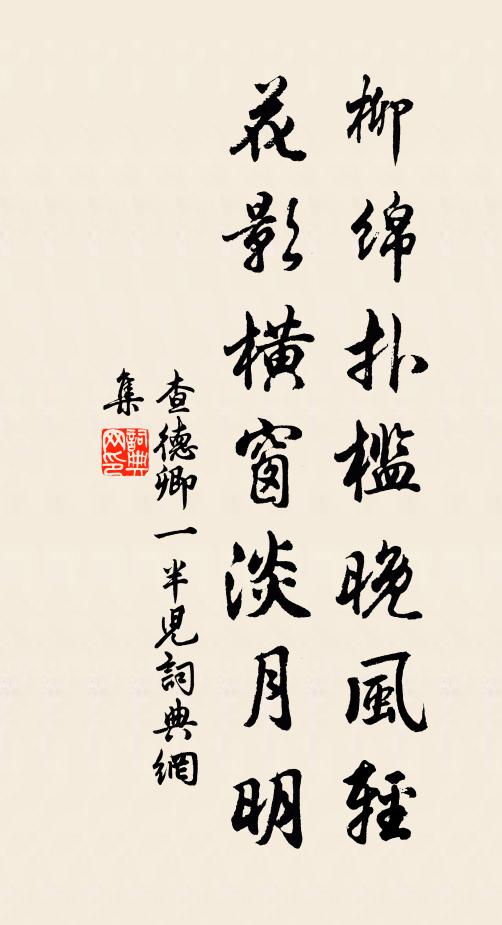 柳绵扑槛晚風輕
花影橫窗淡月明
查德卿一半兒詞典網
集
詞典网印